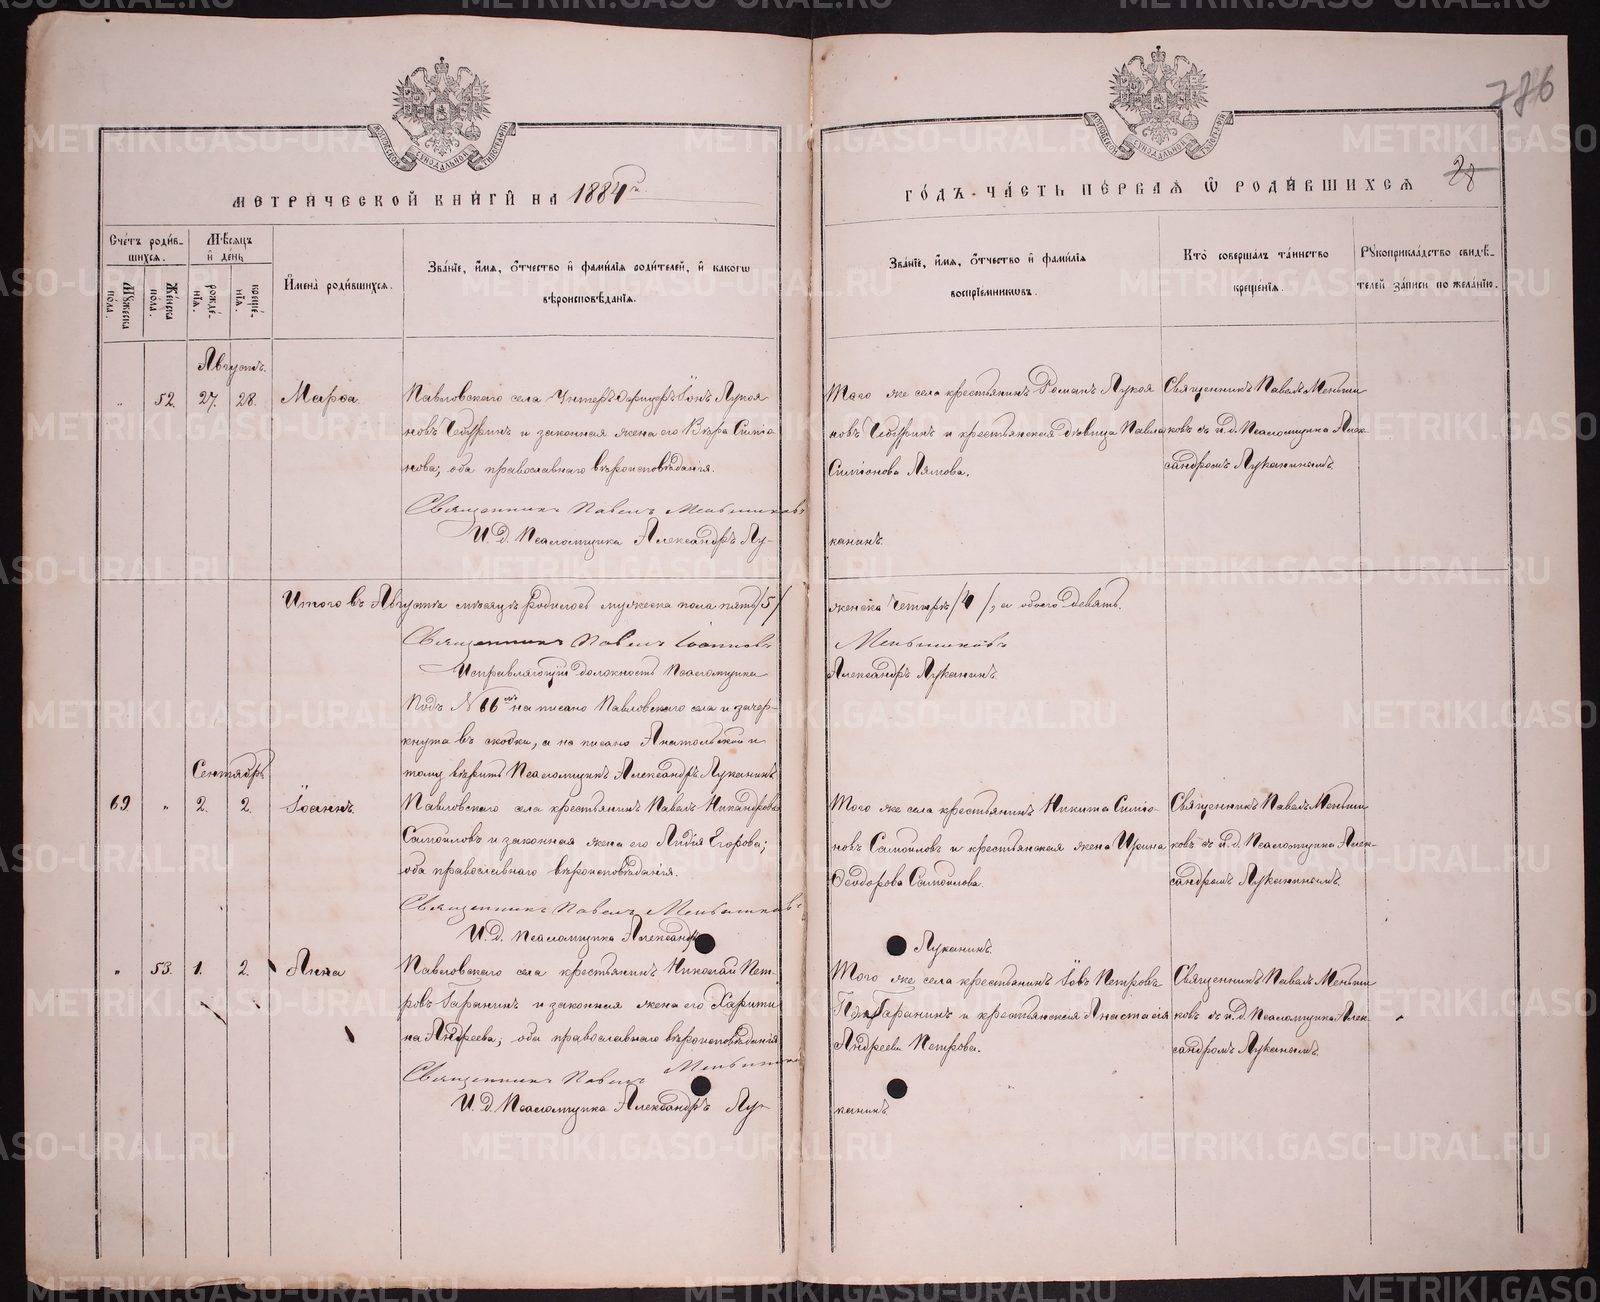 786
28
МЕТРИЧЕСКОЙ КНИГИ НА 1884й
ГОДЪ ЧАСТЬ ПЕРВАЯ Ѿ РОДИВШИХСЯ
Счетъ родив-
шихся.
Мѣсяцъ
и день
Мужеска
пола.
Женска
пола.
рожде-
нія.
креще-
нія.
Имена родившихся.
Званіе, имя, отчество и фамилія родителей, и какого
вѣроисповѣданія.
Званіе, имя, отчество и фамилія
воспріемниковъ.
Кто совершалъ таинство
крещенія.
Рукоприкладство свидѣ-
телей записи по желанію.
Августъ.
" 52. 27. 28. Марѳа.
Павловскаго села Унтеръ Офицеръ Іонъ Лукоя
новъ и законная жена его Вѣра Симіо
нова; оба православнаго вѣроисповѣданія.
Священникъ Павелъ Меньшиковъ
И. Д. Псаломщика Александръ Лу-
Того же села крестьянинъ Романъ Лукоя
новъ и крестьянская дѣвица Павла
Симіонова Лямова.
канинъ.
Священникъ Павелъ Меньши
ковъ съ и. д. Псаломщика Алек
сандромъ Луканинымъ.
Итого въ Августѣ мѣсяцѣ родилось мужеска пола пять /5/
женска четыре /4/, а обоего девять.
Священникъ Павелъ Іоанновъ
Меньшиковъ
Исправляющій должность Псаломщика
Александръ Луканинъ.
Подъ № 66мъ написано Павловскаго села и зачер-
кнута въ скобки, а написано Анатольской и
тому вѣрить Псаломщикъ Александръ Луканинъ
Сентябрь
69 " 2. 2. Іоаннъ.
Павловскаго села крестьянинъ Павелъ Никандровъ
Самойловъ и законная жена его Лидія Егорова;
оба православнаго вѣроисповѣданія.
Священникъ Павелъ Меньшиковъ
И. Д. Псаломщика Александръ
Того же села крестьянинъ Никита Симіо-
новъ Самойловъ и крестьянская жена Ирина
Ѳеодорова Самойлова.
Луканинъ.
Священникъ Павелъ Меньши
ковъ съ и. д. Псаломщика Алек-
сандромъ Луканинымъ.
" 53. 1. 2. Анна
Павловскаго села крестьянинъ Николай Пет-
ровъ Гаранинъ и законная жена его Харити-
на Андреева; оба православнаго вѣроисповѣданія
Священникъ Павелъ Меньшиковъ
И. Д. Псаломщика Александръ Лу-
Того же села крестьянинъ Іовъ Петровъ
Гаранинъ и крестьянская Анастасія
Андреева Петрова.
канинъ
Священникъ Павелъ Меньши
ковъ съ и. д. Псаломщика Алек-
сандромъ Луканинымъ.
METRIKI.GASO-URAL.RU